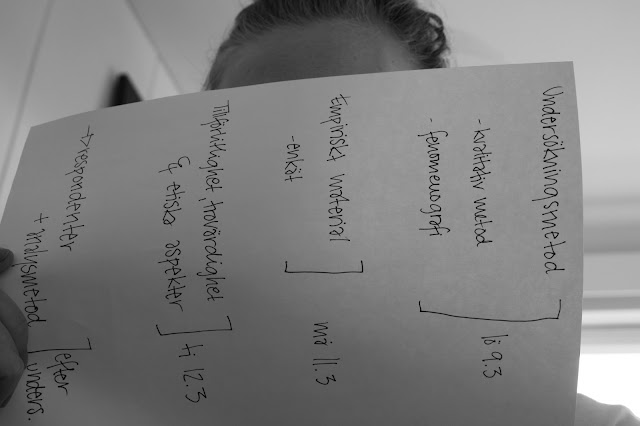 Undersökningsmetod
- kvalitativ metod
- fenomenografi
lö 9.3
Empiriskt material
- enkät
må 11.3
Tillförlitlighet, trovärdighet
& etiska aspekter
ti 12.3
→ respondenter
+ analysmetod
efter
unders.